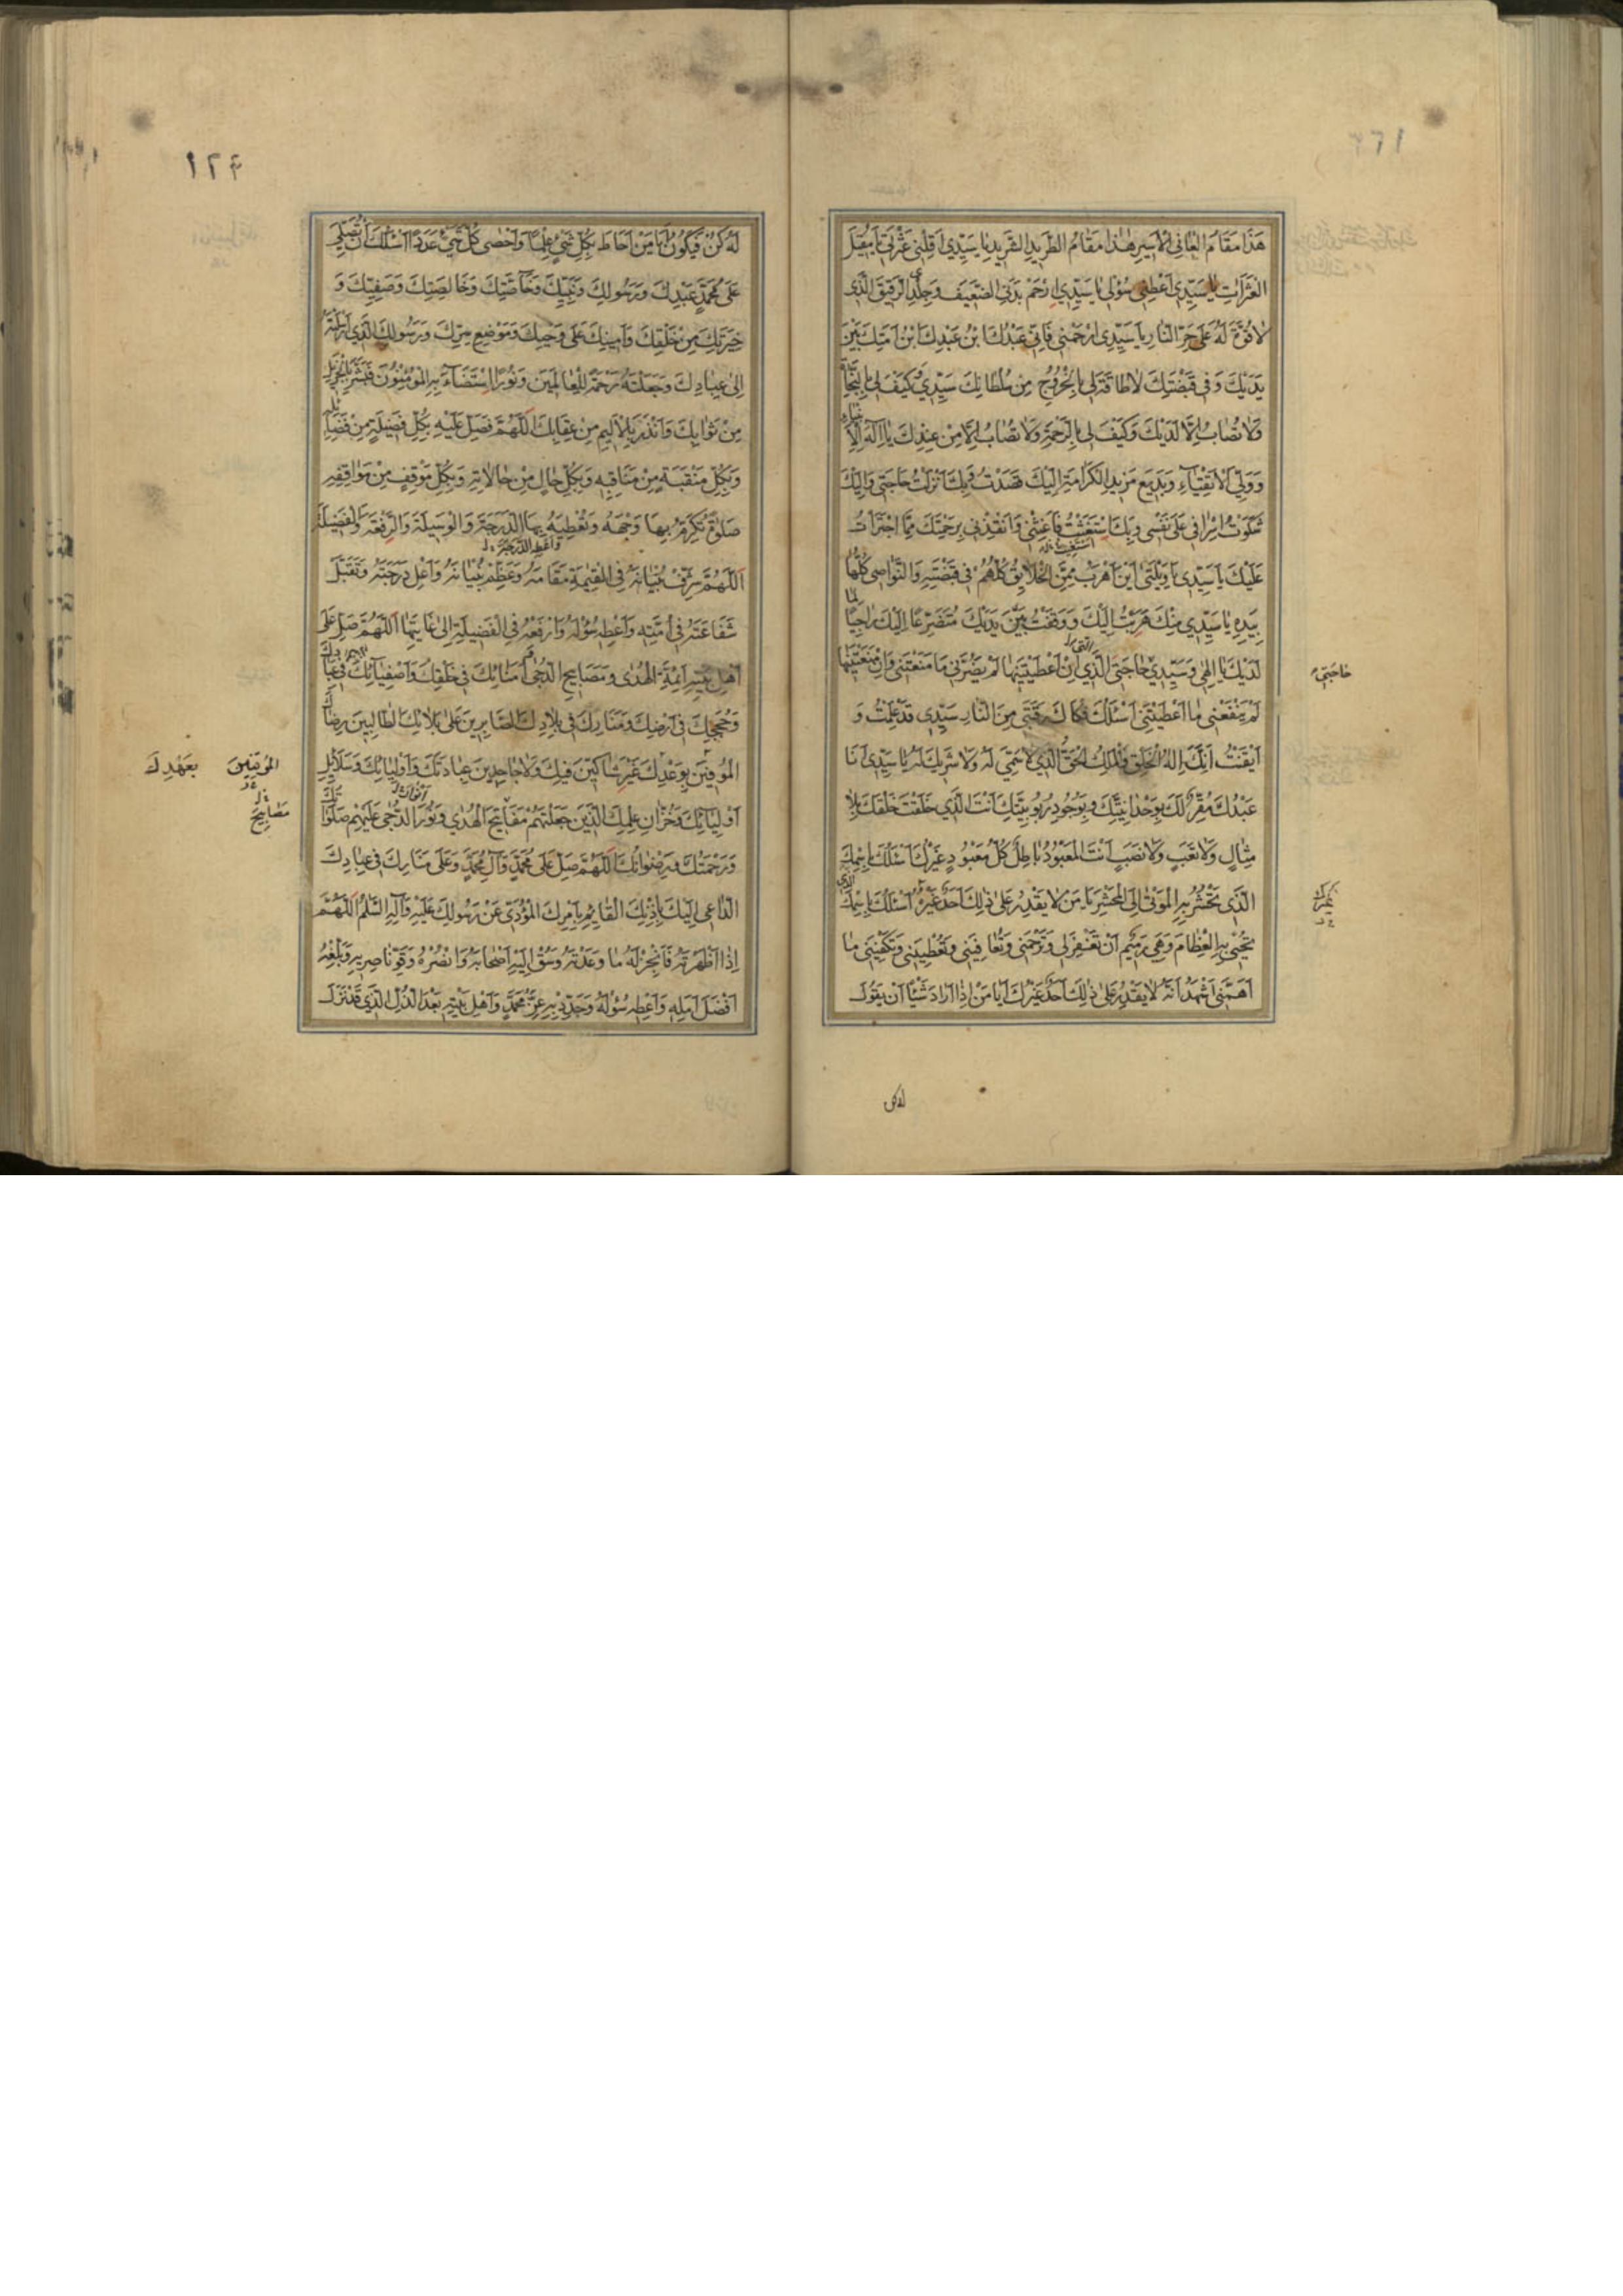 هٰذَا مَقَامُ الْعَانِي الْأَسِيرِ هٰذَا مَقَامُ الطَّرِيدِ الشَّرِيدِ يَا سَيِّدِي أَقِلْنِي عَثْرَتِي يَا مُقِيلَ
الْعَثَرَاتِ يَا سَيِّدِي أَعْطِنِي سُؤْلِي يَا سَيِّدِي ارْحَمْ بَدَنِيَ الضَّعِيفَ وَجِلْدِيَ الرَّقِيقَ الَّذِي
لَا قُوَّةَ لَهُ عَلَى حَرِّ النَّارِ يَا سَيِّدِي ارْحَمْنِي فَإِنِّي عَبْدُكَ ابْنُ عَبْدِكَ ابْنُ أَمَتِكَ بَيْنَ
يَدَيْكَ وَفِي قَبْضَتِكَ لَا طَاقَةَ لِي بِالْخُرُوجِ مِنْ سُلْطَانِكَ سَيِّدِي كَيْفَ لِي بِالنَّجَاةِ
وَلَا تُصَابُ إِلَّا لَدَيْكَ وَكَيْفَ لِي بِالرَّحْمَةِ وَلَا تُصَابُ إِلَّا مِنْ عِنْدِكَ يَا إِلٰهَ الْأَنْبِيَاءِ
وَوَلِيَّ الْأَتْقِيَاءِ وَبَدِيعَ مَزِيدِ الْكَرَامَةِ إِلَيْكَ قَصَدْتُ وَبِكَ أَنْزَلْتُ حَاجَتِي وَإِلَيْكَ
شَكَوْتُ إِسْرَافِي عَلَى نَفْسِي وَبِكَ اسْتَغَثْتُ فَأَغِثْنِي وَأَنْقِذْنِي بِرَحْمَتِكَ مِمَّا اجْتَرَأْتُ
عَلَيْكَ يَا سَيِّدِي يَا وَيْلَتَى أَيْنَ أَهْرُبُ مِمَّنِ الْخَلَائِقُ كُلُّهُمْ فِي قَبْضَتِهِ وَالنَّوَاصِي كُلُّهَا
بِيَدِهِ يَا سَيِّدِي مِنْكَ هَرَبْتُ إِلَيْكَ وَوَقَفْتُ بَيْنَ يَدَيْكَ مُتَضَرِّعًا إِلَيْكَ رَاجِيًا لِمَا
لَدَيْكَ يَا إِلٰهِي وَسَيِّدِي حَاجَتِيَ الَّذِي إِنْ أَعْطَيْتَنِيهَا لَمْ يَضُرَّنِي مَا مَنَعْتَنِي وَإِنْ مَنَعْتَنِيهَا
حَاجَتِي
لَمْ يَنْفَعْنِي مَا أَعْطَيْتَنِي أَسْئَلُكَ فَكَاكَ رَقَبَتِي مِنَ النَّارِ سَيِّدِي قَدْ عَلِمْتُ وَ
أَيْقَنْتُ أَنَّكَ إِلٰهُ الْخَلْقِ وَالْمَلِكُ الْحَقُّ الَّذِي لَا سَمِيَّ لَهُ وَلَا شَرِيكَ لَهُ يَا سَيِّدِي أَنَا
عَبْدُكَ مُقِرٌّ لَكَ بِوَحْدَانِيَّتِكَ وَبِوُجُودِ رُبُوبِيَّتِكَ أَنْتَ الَّذِي خَلَقْتَ خَلْقَكَ بِلَا
مِثَالٍ وَلَا تَعَبٍ وَلَا نَصَبٍ أَنْتَ الْمَعْبُودُ بَاطِلٌ كُلُّ مَعْبُودٍ غَيْرُكَ أَسْئَلُكَ بِاسْمِكَ
الَّذِي تَحْشُرُ بِهِ الْمَوْتَى إِلَى الْمَحْشَرِ يَا مَنْ لَا يَقْدِرُ عَلَى ذٰلِكَ أَحَدٌ غَيْرُهُ أَسْئَلُكَ بِاسْمِكَ الَّذِي
تُحْيِي بِهِ الْعِظَامَ وَهِيَ رَمِيمٌ أَنْ تَغْفِرَ لِي وَتَرْحَمَنِي وَتُعَافِيَنِي وَتُعْطِيَنِي وَتَكْفِيَنِي مَا
أَهَمَّنِي أَشْهَدُ أَنَّهُ لَا يَقْدِرُ عَلَى ذٰلِكَ أَحَدٌ غَيْرُكَ أَيَا مَنْ إِذَا أَرَادَ شَيْئًا أَنْ يَقُولَ
له كن
١٢٤
لَهُ كُنْ فَيَكُونُ أَيَا مَنْ أَحَاطَ بِكُلِّ شَيْءٍ عِلْمًا وَأَحْصَى كُلَّ شَيْءٍ عَدَدًا أَسْئَلُكَ أَنْ تُصَلِّيَ
عَلَى مُحَمَّدٍ عَبْدِكَ وَرَسُولِكَ وَنَبِيِّكَ وَخَاصَّتِكَ وَخَالِصَتِكَ وَصَفِيِّكَ وَ
خِيَرَتِكَ مِنْ خَلْقِكَ وَأَمِينِكَ عَلَى وَحْيِكَ وَمَوْضِعِ سِرِّكَ وَرَسُولِكَ الَّذِي أَرْسَلْتَهُ
إِلَى عِبَادِكَ وَجَعَلْتَهُ رَحْمَةً لِلْعَالَمِينَ وَنُورًا اسْتَضَاءَ بِهِ الْمُؤْمِنُونَ فَبَشَّرَ بِالْجَزِيلِ
مِنْ ثَوَابِكَ وَأَنْذَرَ بِالْأَلِيمِ مِنْ عِقَابِكَ اللَّهُمَّ فَصَلِّ عَلَيْهِ بِكُلِّ فَضِيلَةٍ مِنْ فَضَائِلِهِ
وَبِكُلِّ مَنْقَبَةٍ مِنْ مَنَاقِبِهِ وَبِكُلِّ حَالٍ مِنْ حَالَاتِهِ وَبِكُلِّ مَوْقِفٍ مِنْ مَوَاقِفِهِ
صَلٰوةً تُكْرِمُ بِهَا وَجْهَهُ وَتُعْطِيهِ بِهَا الدَّرَجَةَ وَالْوَسِيلَةَ وَالرِّفْعَةَ وَالْفَضِيلَةَ
وَأَعْطِهِ الدَّرَجَةَ
اللَّهُمَّ شَرِّفْ بُنْيَانَهُ فِي الْقِيٰمَةِ مَقَامَهُ وَعَظِّمْ بُنْيَانَهُ وَأَعْلِ دَرَجَتَهُ وَتَقَبَّلْ
شَفَاعَتَهُ فِي أُمَّتِهِ وَأَعْطِهِ سُؤْلَهُ وَارْفَعْهُ فِي الْفَضِيلَةِ إِلَى غَايَتِهَا اللَّهُمَّ صَلِّ عَلَى
أَهْلِ بَيْتِهِ أَئِمَّةِ الْهُدَى وَمَصَابِيحِ الدُّجَى أُمَنَائِكَ فِي خَلْقِكَ وَأَصْفِيَائِكَ فِي عِبَادِكَ
وَحُجَجِكَ فِي أَرْضِكَ وَمَنَارِكَ فِي بِلَادِكَ الصَّابِرِينَ عَلَى بَلَائِكَ الطَّالِبِينَ رِضَاكَ
الْمُوفِينَ بِوَعْدِكَ غَيْرَ شَاكِّينَ فِيكَ وَلَا جَاحِدِينَ عِبَادَتَكَ وَأَوْلِيَائِكَ وَسَلَائِلِ
الْمُوقِنِينَ بِعَهْدِكَ
أَوْلِيَائِكَ وَخُزَّانِ عِلْمِكَ الَّذِينَ جَعَلْتَهُمْ مَفَاتِيحَ الْهُدَى وَنُورَ الدُّجَى عَلَيْهِمْ صَلَوَاتُكَ
أَنْوَارَ
مَصَابِيحَ
وَرَحْمَتُكَ وَرِضْوَانُكَ اللَّهُمَّ صَلِّ عَلَى مُحَمَّدٍ وَآلِ مُحَمَّدٍ وَعَلَى مَنَارِكَ فِي عِبَادِكَ
الدَّاعِي إِلَيْكَ بِإِذْنِكَ الْقَائِمِ بِأَمْرِكَ الْمُؤَدِّي عَنْ رَسُولِكَ عَلَيْهِ وَآلِهِ السَّلَامُ اللَّهُمَّ
إِذَا أَظْهَرْتَهُ فَأَنْجِزْ لَهُ مَا وَعَدْتَهُ وَسُقْ إِلَيْهِ أَصْحَابَهُ وَانْصُرْهُ وَقَوِّ نَاصِرِيهِ وَبَلِّغْهُ
أَفْضَلَ أَمَلِهِ وَأَعْطِهِ سُؤْلَهُ وَجَدِّدْ بِهِ عِزَّ مُحَمَّدٍ وَأَهْلِ بَيْتِهِ بَعْدَ الذُّلِّ الَّذِي قَدْ نَزَلَ